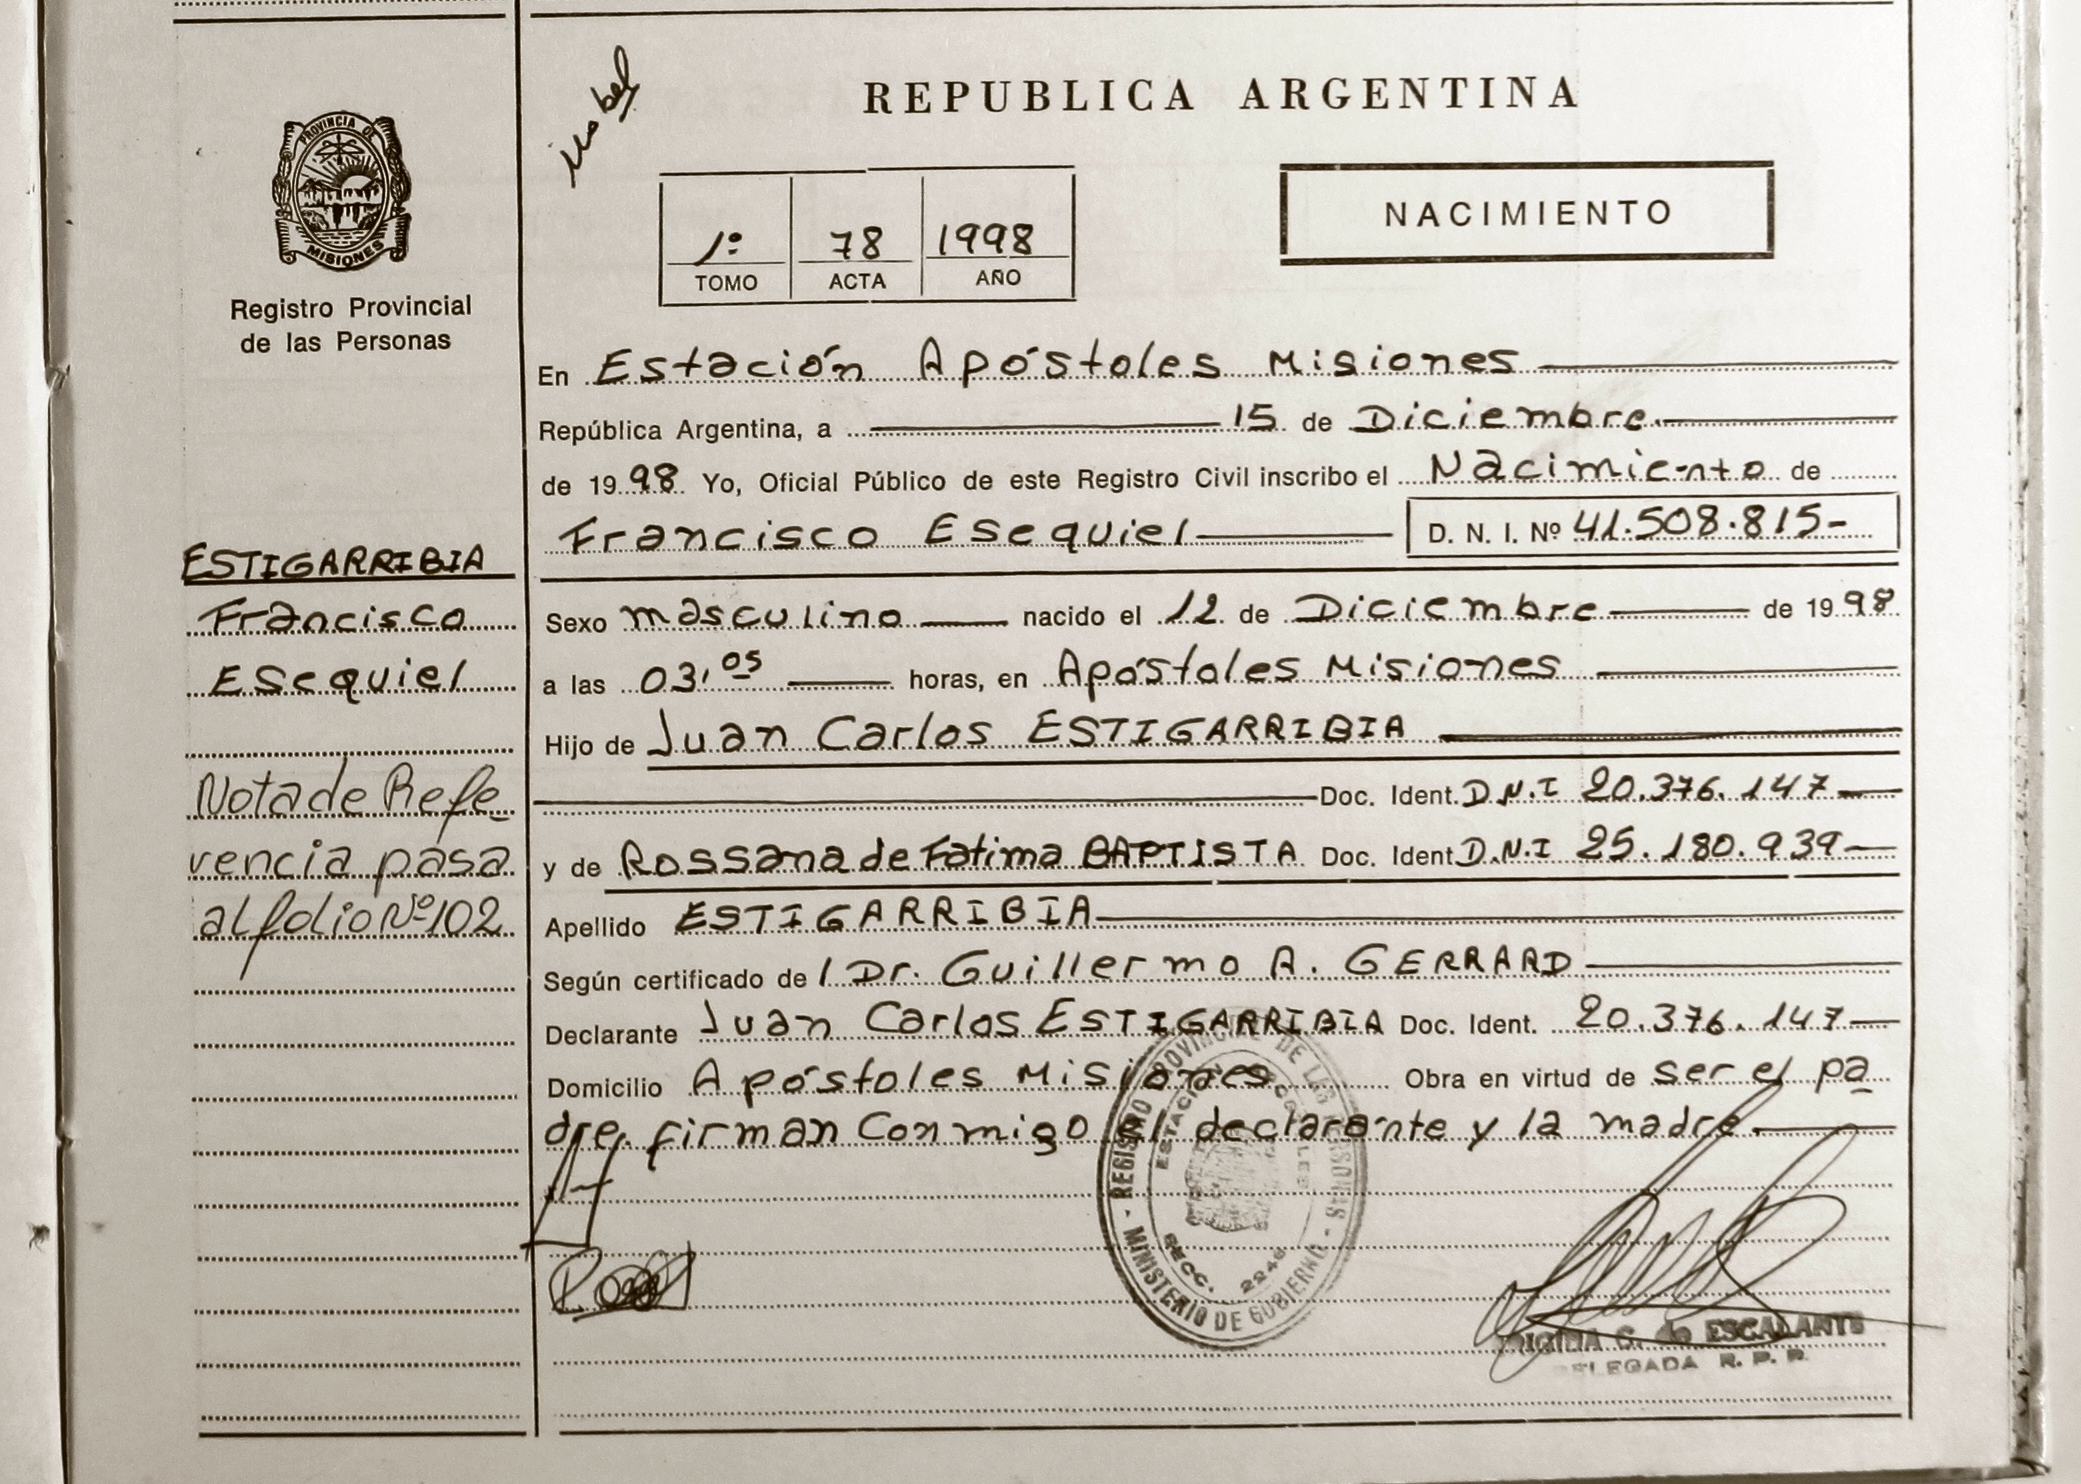 PROVINCIA DE
MISIONES
Registro Provincial
de las Personas
ESTIGARRIBIA
Francisco
Esequiel
Nota de Refe
rencia pasa
al folio Nº 102
REPUBLICA ARGENTINA
1º 78 1998
TOMO ACTA AÑO
NACIMIENTO
En Estación Apóstoles Misiones
República Argentina, a 15 de Diciembre
de 1998 Yo, Oficial Público de este Registro Civil inscribo el Nacimiento de
Francisco Esequiel D. N. I. Nº 41.508.815-
Sexo masculino nacido el 12 de Diciembre de 1998
a las 03,05 horas, en Apóstoles Misiones
Hijo de Juan Carlos ESTIGARRIBIA
Doc. Ident. D.N.I 20.376.147
y de Rossana de Fatima BAPTISTA Doc. Ident D.N.I 25.180.939
Apellido ESTIGARRIBIA
Según certificado de l Dr. Guillermo A. GERRARD
Declarante Juan Carlos ESTIGARRIBIA Doc. Ident. 20.376.147
Domicilio Apóstoles Misiones Obra en virtud de ser el pa
dre. firman Conmigo el declarante y la madre.
- REGISTRO PROVINCIAL DE LAS PERSONAS -
MINISTERIO DE GOBIERNO
SECC. 2246
G. de ESCALANTE
DELEGADA R. P. P.